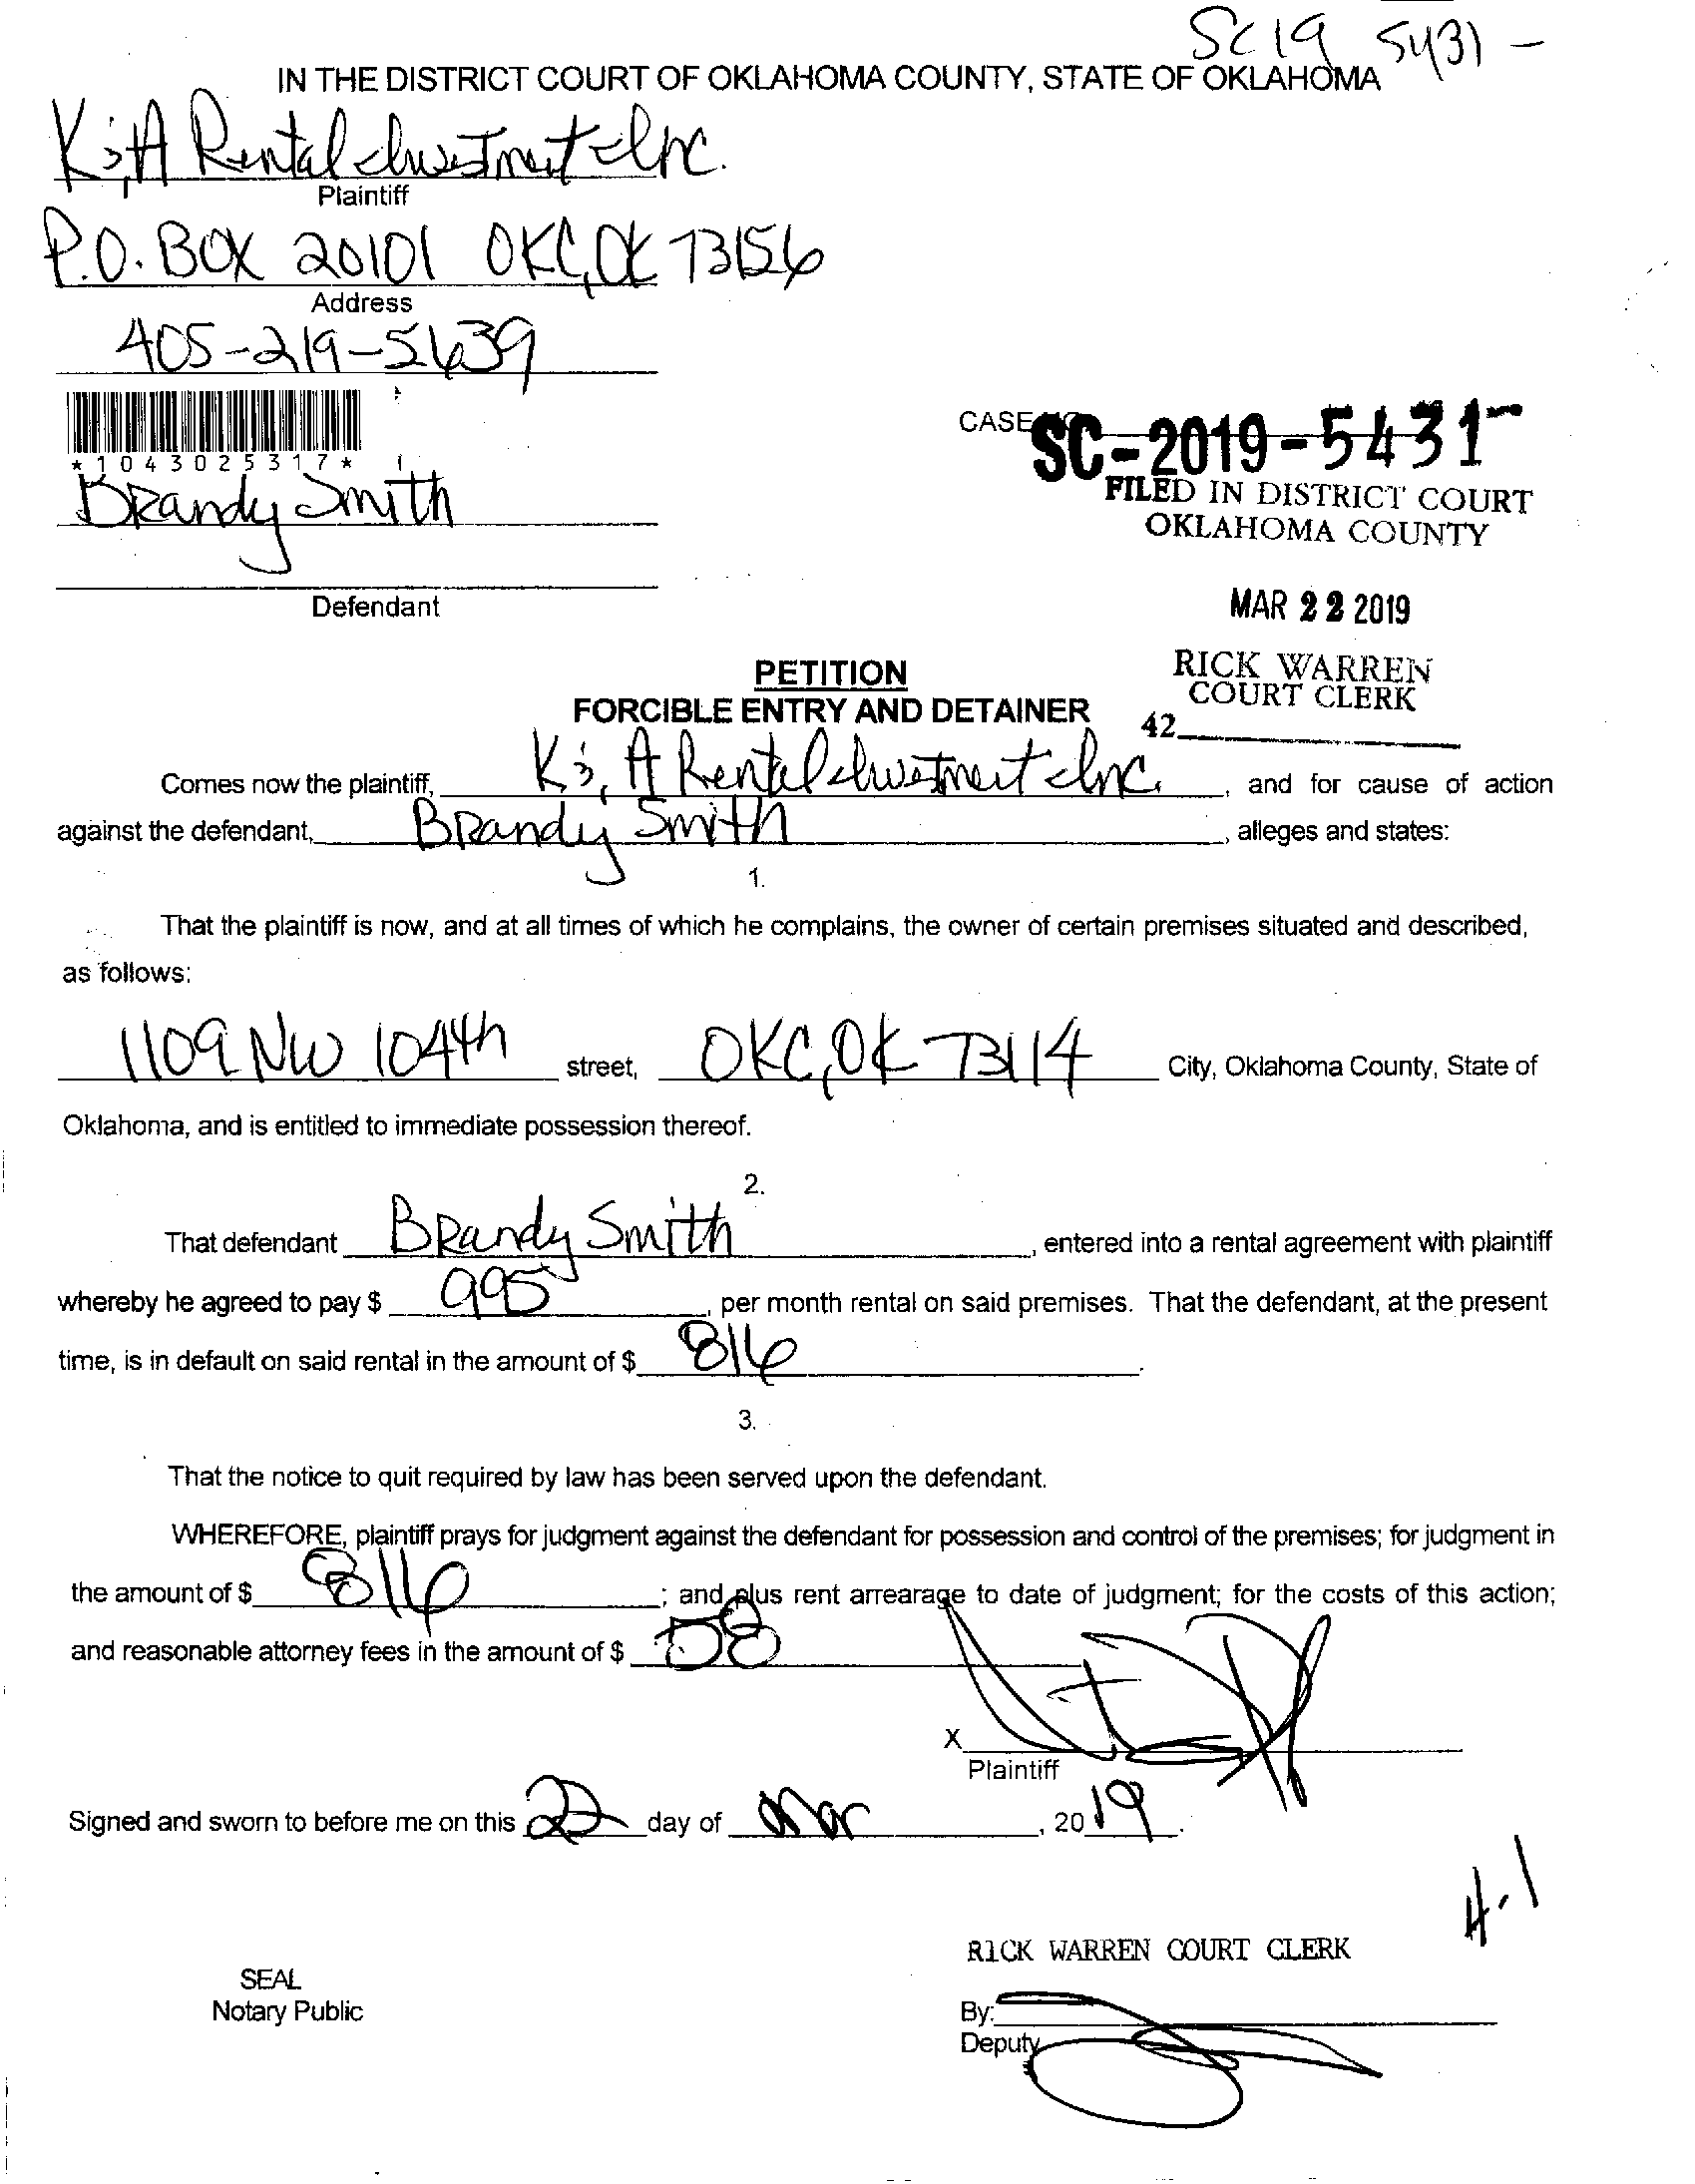 SC19 5431 -
IN THE DISTRICT COURT OF OKLAHOMA COUNTY, STATE OF OKLAHOMA
K;A Rental Investment Inc.
Plaintiff
P.O. BOX 20101 OKC, OK 73156
Address
405-219-5639
*1043025317*
CASE SC-2019-5431-
Brandy Smith
FILED IN DISTRICT COURT
OKLAHOMA COUNTY
Defendant
MAR 22 2019
PETITION
RICK WARREN
COURT CLERK
FORCIBLE ENTRY AND DETAINER
42
Comes now the plaintiff, K;A Rental Investment Inc., and for cause of action
against the defendant, Brandy Smith, alleges and states:
1.
That the plaintiff is now, and at all times of which he complains, the owner of certain premises situated and described,
as follows:
1109 NW 104th street, OKC, OK 73114 City, Oklahoma County, State of
Oklahoma, and is entitled to immediate possession thereof.
2.
That defendant Brandy Smith, entered into a rental agreement with plaintiff
whereby he agreed to pay $ 995, per month rental on said premises. That the defendant, at the present
time, is in default on said rental in the amount of $ 816.
3.
That the notice to quit required by law has been served upon the defendant.
WHEREFORE, plaintiff prays for judgment against the defendant for possession and control of the premises; for judgment in
the amount of $ 816; and plus rent arrearage to date of judgment; for the costs of this action;
and reasonable attorney fees in the amount of $ 58
X
Plaintiff
Signed and sworn to before me on this 22 day of Mar, 2019.
4-1
RICK WARREN COURT CLERK
SEAL
Notary Public
By:
Deputy